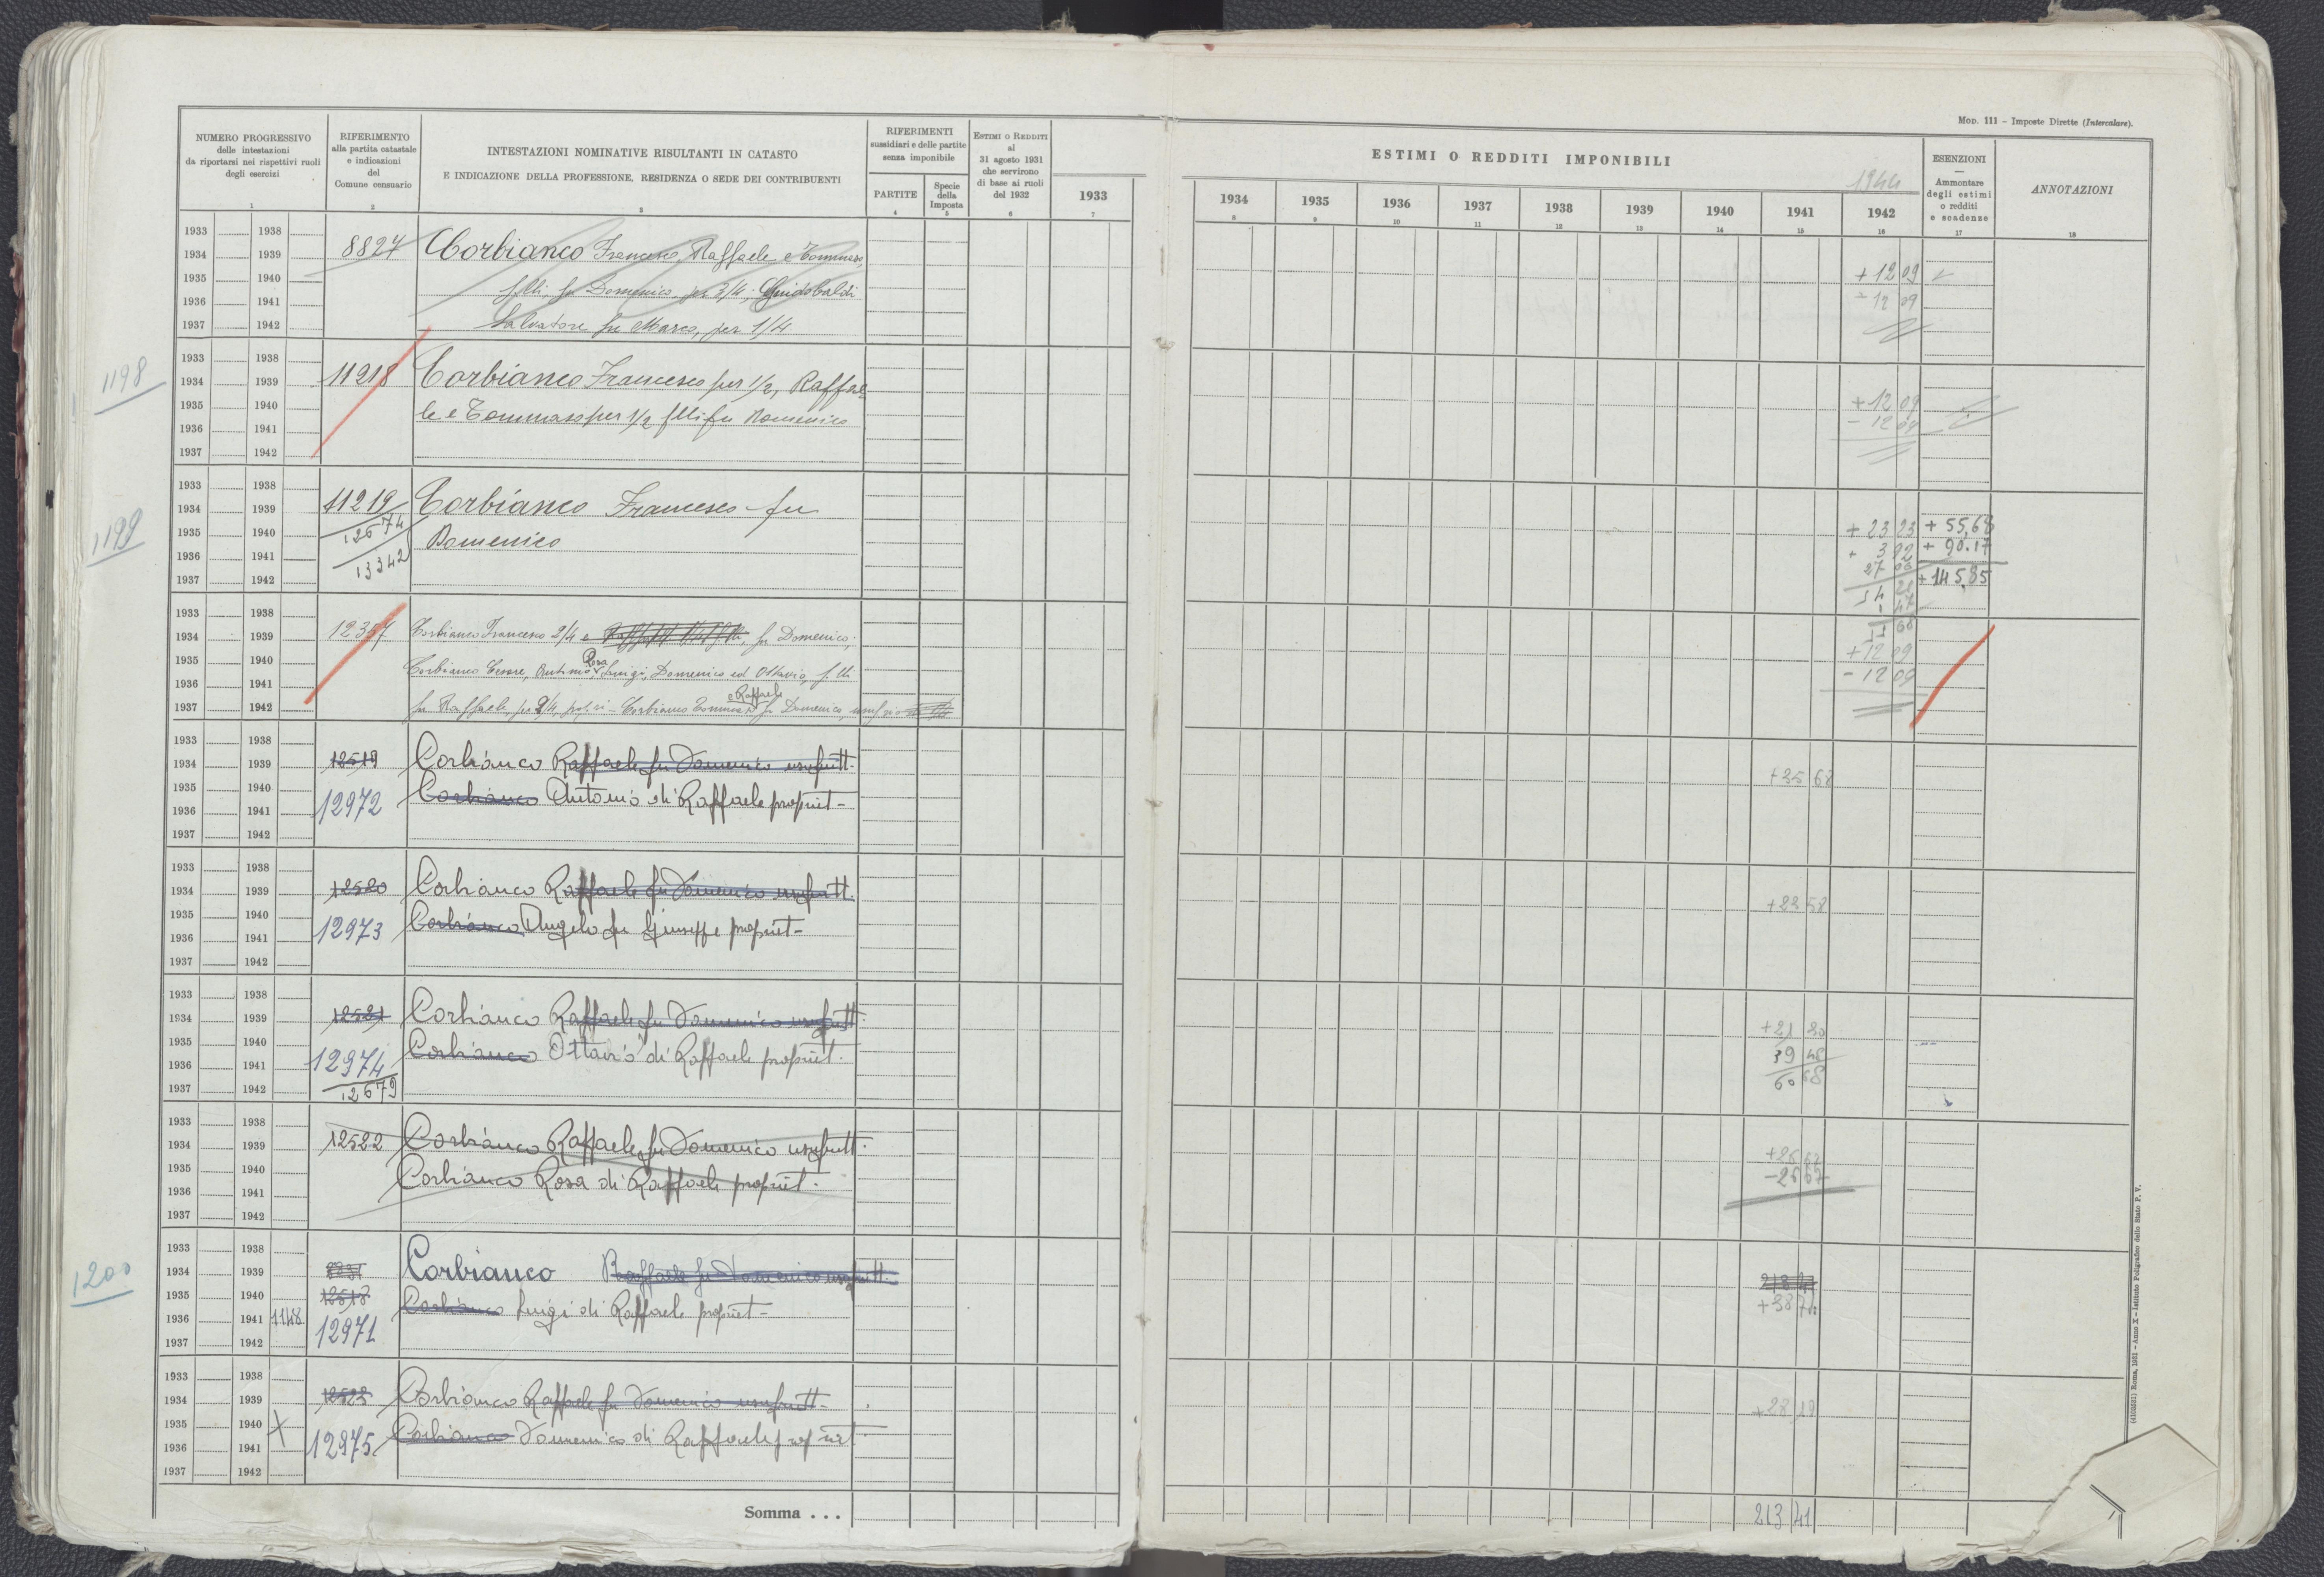 Mod. 111 – Imposte Dirette (Intercalare).
NUMERO PROGRESSIVO
delle intestazioni
da riportarsi nei rispettivi ruoli
degli esercizi
1
RIFERIMENTO
alla partita catastale
e indicazioni
del
Comune censuario
2
INTESTAZIONI NOMINATIVE RISULTANTI IN CATASTO
E INDICAZIONE DELLA PROFESSIONE, RESIDENZA O SEDE DEI CONTRIBUENTI
3
RIFERIMENTI
sussidiari e delle partite
senza imponibile
PARTITE
4
Specie
della
Imposta
5
ESTIMI O REDDITI
al
31 agosto 1931
che servirono
di base ai ruoli
del 1932
6
1933
7
ESTIMI O REDDITI IMPONIBILI
1944
1934 1935 1936 1937 1938 1939 1940 1941 1942
8 9 10 11 12 13 14 15 16
ESENZIONI
—
Ammontare
degli estimi
o redditi
e scadenze
17
ANNOTAZIONI
18
1933 1938
1934 1939
1935 1940
1936 1941
1937 1942
8827
Corbianco Francesco, Raffaele e Tommaso,
f.lli, fu Domenico per 3/4; Guidobaldi
Salvatore fu Marco, per 1/4
+ 12 09
- 12 09
1198
1933 1938
1934 1939
1935 1940
1936 1941
1937 1942
11218
Corbianco Francesco per 1/2, Raffae
le e Tommaso per 1/2 f.lli fu Domenico
+ 12 09
- 12 09
1199
1933 1938
1934 1939
1935 1940
1936 1941
1937 1942
11219
12674
13342
Corbianco Francesco fu
Domenico
+ 23 23
+ 55,68
+ 90.17
+ 145,85
1933 1938
1934 1939
1935 1940
1936 1941
1937 1942
12357
Corbianco Francesco 2/4 e fu Domenico;
Rosa
Corbianco Cesare, Antimo, Luigi, Domenico ed Ottavio, f.lli
e Raffaele
fu Raffaele, per 2/4, prop.ri - Corbianco Tommaso fu Domenico, usuf.rio
+ 12 09
- 12 09
1933 1938
1934 1939
1935 1940
1936 1941
1937 1942
12519
12972
Corbianco Raffaele fu Domenico usufrutt.
Corbianco Antonio di Raffaele propriet-
+35 68
1933 1938
1934 1939
1935 1940
1936 1941
1937 1942
12520
12973
Corbianco Raffaele fu Domenico usufrutt.
Corbianco Angelo fu Giuseppe propriet-
+23 58
1933 1938
1934 1939
1935 1940
1936 1941
1937 1942
12521
12974
12679
Corbianco Raffaele fu Domenico usufrutt.
Corbianco Ottavio di Raffaele propriet.
+21 20
39 48
60 68
1933 1938
1934 1939
1935 1940
1936 1941
1937 1942
12522
Corbianco Raffaele fu Domenico usufrutt.
Corbianco Rosa di Raffaele propriet.
+25 67
-25 67
1200
1933 1938
1934 1939
1935 1940
1936 1941 1148
1937 1942
12518
12971
Corbianco Raffaele fu Domenico usufrutt.
Corbianco Luigi di Raffaele propriet-
1933 1938
1934 1939
1935 1940 X
1936 1941
1937 1942
12523
12975
Corbianco Raffaele fu Domenico usufrutt-
Corbianco Domenico di Raffaele propriet.
+28 19
Somma . . .
213 41
(4102331) Roma, 1931 - Anno X - Istituto Poligrafico dello Stato P. V.